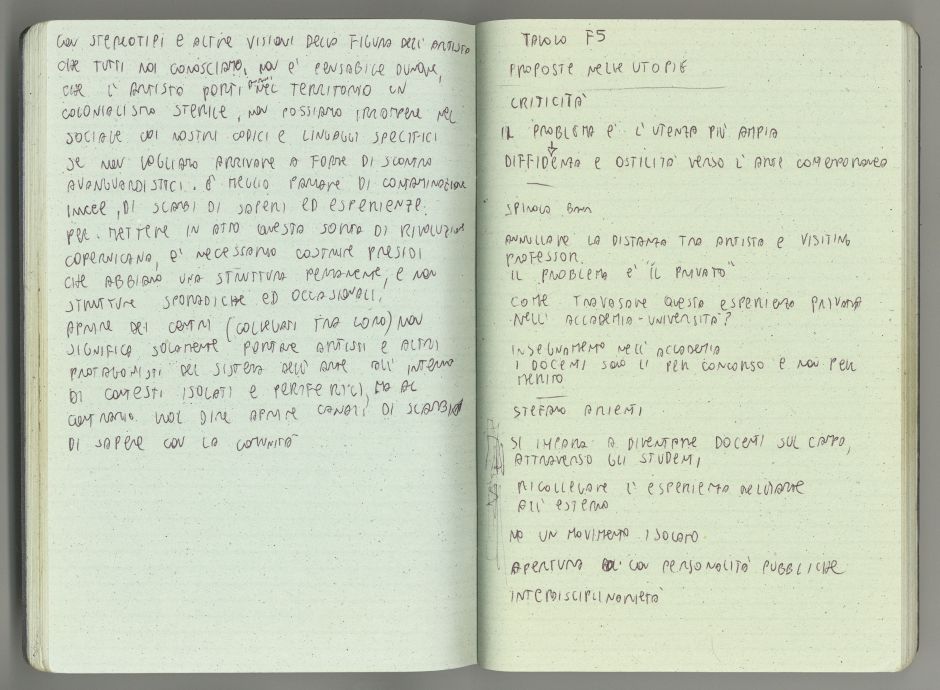 CON STEREOTIPI E ALTRE VISIONI DELLA FIGURA DELL'ARTISTA
CHE TUTTI NOI CONOSCIAMO, NON E' PENSABILE DUNQUE,
CHE L'ARTISTA PORTI NEL TERRITORIO UN
COLONIALISMO STERILE, NON POSSIAMO IRROMPERE NEL
SOCIALE COI NOSTRI CODICI E LINGUAGGI SPECIFICI
SE NON VOGLIAMO ARRIVARE A FORME DI SCONTRO
AVANGUARDISTICI. È MEGLIO PARLARE DI CONTAMINAZIONE
INVECE, DI SCAMBI DI SAPERI ED ESPERIENZE.
PER METTERE IN ATTO QUESTA SORTA DI RIVOLUZIONE
COPERNICANA, E' NECESSARIO COSTRUIRE PRESIDI
CHE ABBIANO UNA STRUTTURA PERMANENTE, E NON
STRUTTURE SPORADICHE ED OCCASIONALI.
APRIRE DEI CENTRI (COLLEGATI TRA LORO) NON
SIGNIFICA SOLAMENTE PORTARE ARTISTI E ALTRI
PROTAGONISTI DEL SISTEMA DELL'ARTE ALL'INTERNO
DI CONTESTI ISOLATI E PERIFERICI, MA AL
CONTRARIO VUOL DIRE APRIRE CANALI DI SCAMBI
DI SAPERE CON LA COMUNITÀ
TAVOLO F5
PROPOSTE NELLE UTOPIE
CRITICITÀ
IL PROBLEMA E' L'UTENZA PIÙ AMPIA
DIFFIDENZA E OSTILITÀ VERSO L'ARTE CONTEMPORANEA
SPINOLA
ANNULLARE LA DISTANZA TRA ARTISTA E VISITING
PROFESSOR.
IL PROBLEMA E' "IL PRIVATO"
COME TRAVASARE QUESTA ESPERIENZA PRIVATA
NELL'ACCADEMIA-UNIVERSITÀ?
INSEGNAMENTO NELL'ACCADEMIA
I DOCENTI SONO LI PER CONCORSO E NON PER
MERITO
STEFANO ARIENTI
SI IMPARA A DIVENTARE DOCENTI SUL CAMPO,
ATTRAVERSO GLI STUDENTI,
RICOLLEGARE L'ESPERIENZA DELL'ARTE
ALL'ESTERNO
NO UN MOVIMENTO ISOLATO
APERTURA CON PERSONALITÀ PUBBLICHE
INTERDISCIPLINARIETÀ